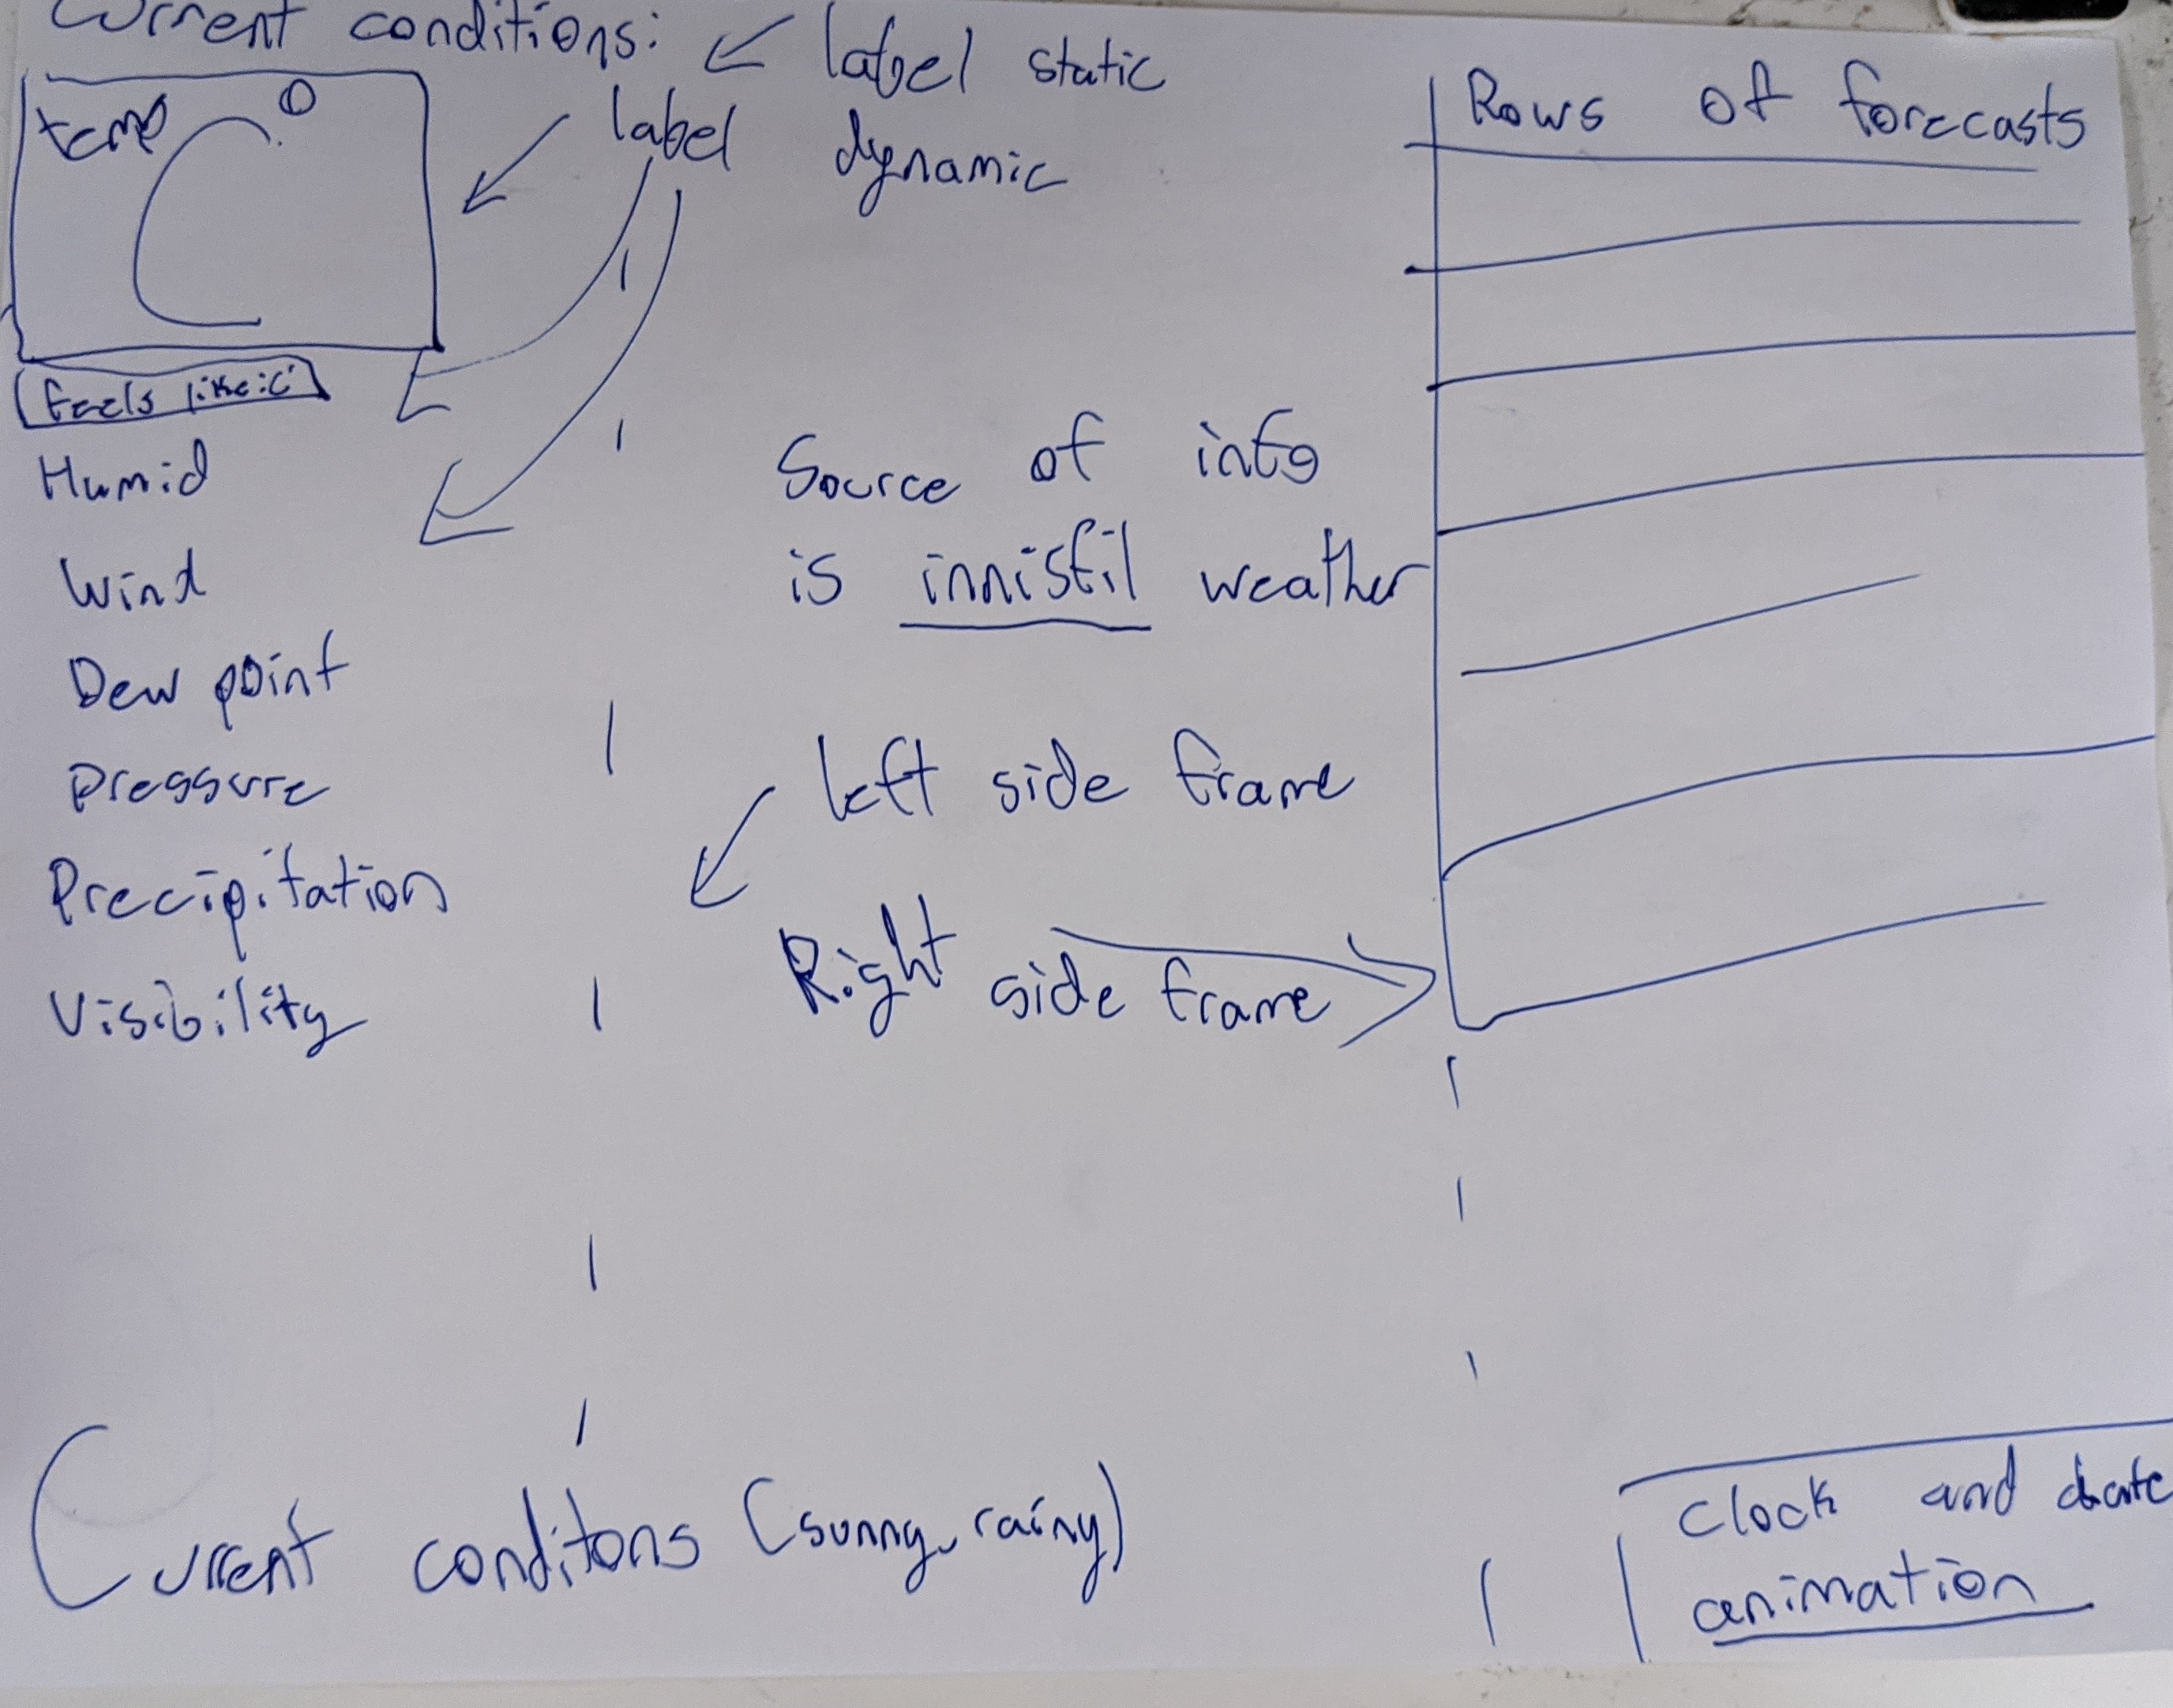 Current conditions:
label static
temp °C
label dynamic
Feels like: C
Humid
Wind
Dew point
Pressure
Precipitation
Visibility
Source of info
is innisfil weather
Left side frame
Right side frame
Rows of forecasts
Current conditons (sunny, rainy)
Clock and date
animation